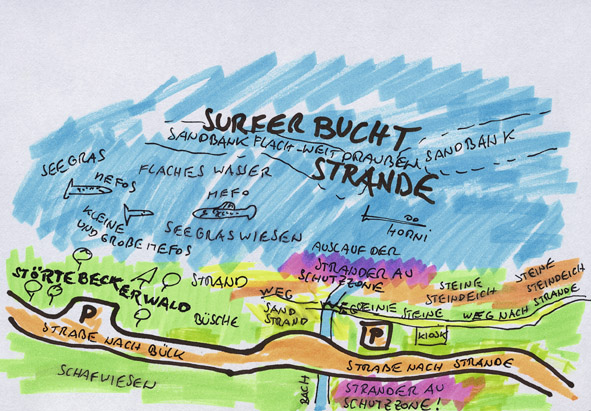 SURFER BUCHT
SANDBANK FLACH - WEIT DRAUßEN
SANDBANK
STRANDE
SEEGRAS
MEFOS
FLACHES WASSER
MEFO
KLEINE
UND GROßE MEFOS
SEEGRASWIESEN
HORNI
AUSLAUF DER
STRANDER AU
SCHUTZZONE
STÖRTEBECKERWALD
STRAND
STEINE
STEINDEICH
STEINE
STEINDEICH
STEINE
STRANDE
WEG
SAND
STRAND
WEG
STEINE
WEG NACH
BÜSCHE
P
P
KIOSK
STRAßE NACH BÜCK
STRAßE NACH STRANDE
SCHAFWIESEN
BACH
STRANDER AU
SCHUTZZONE!